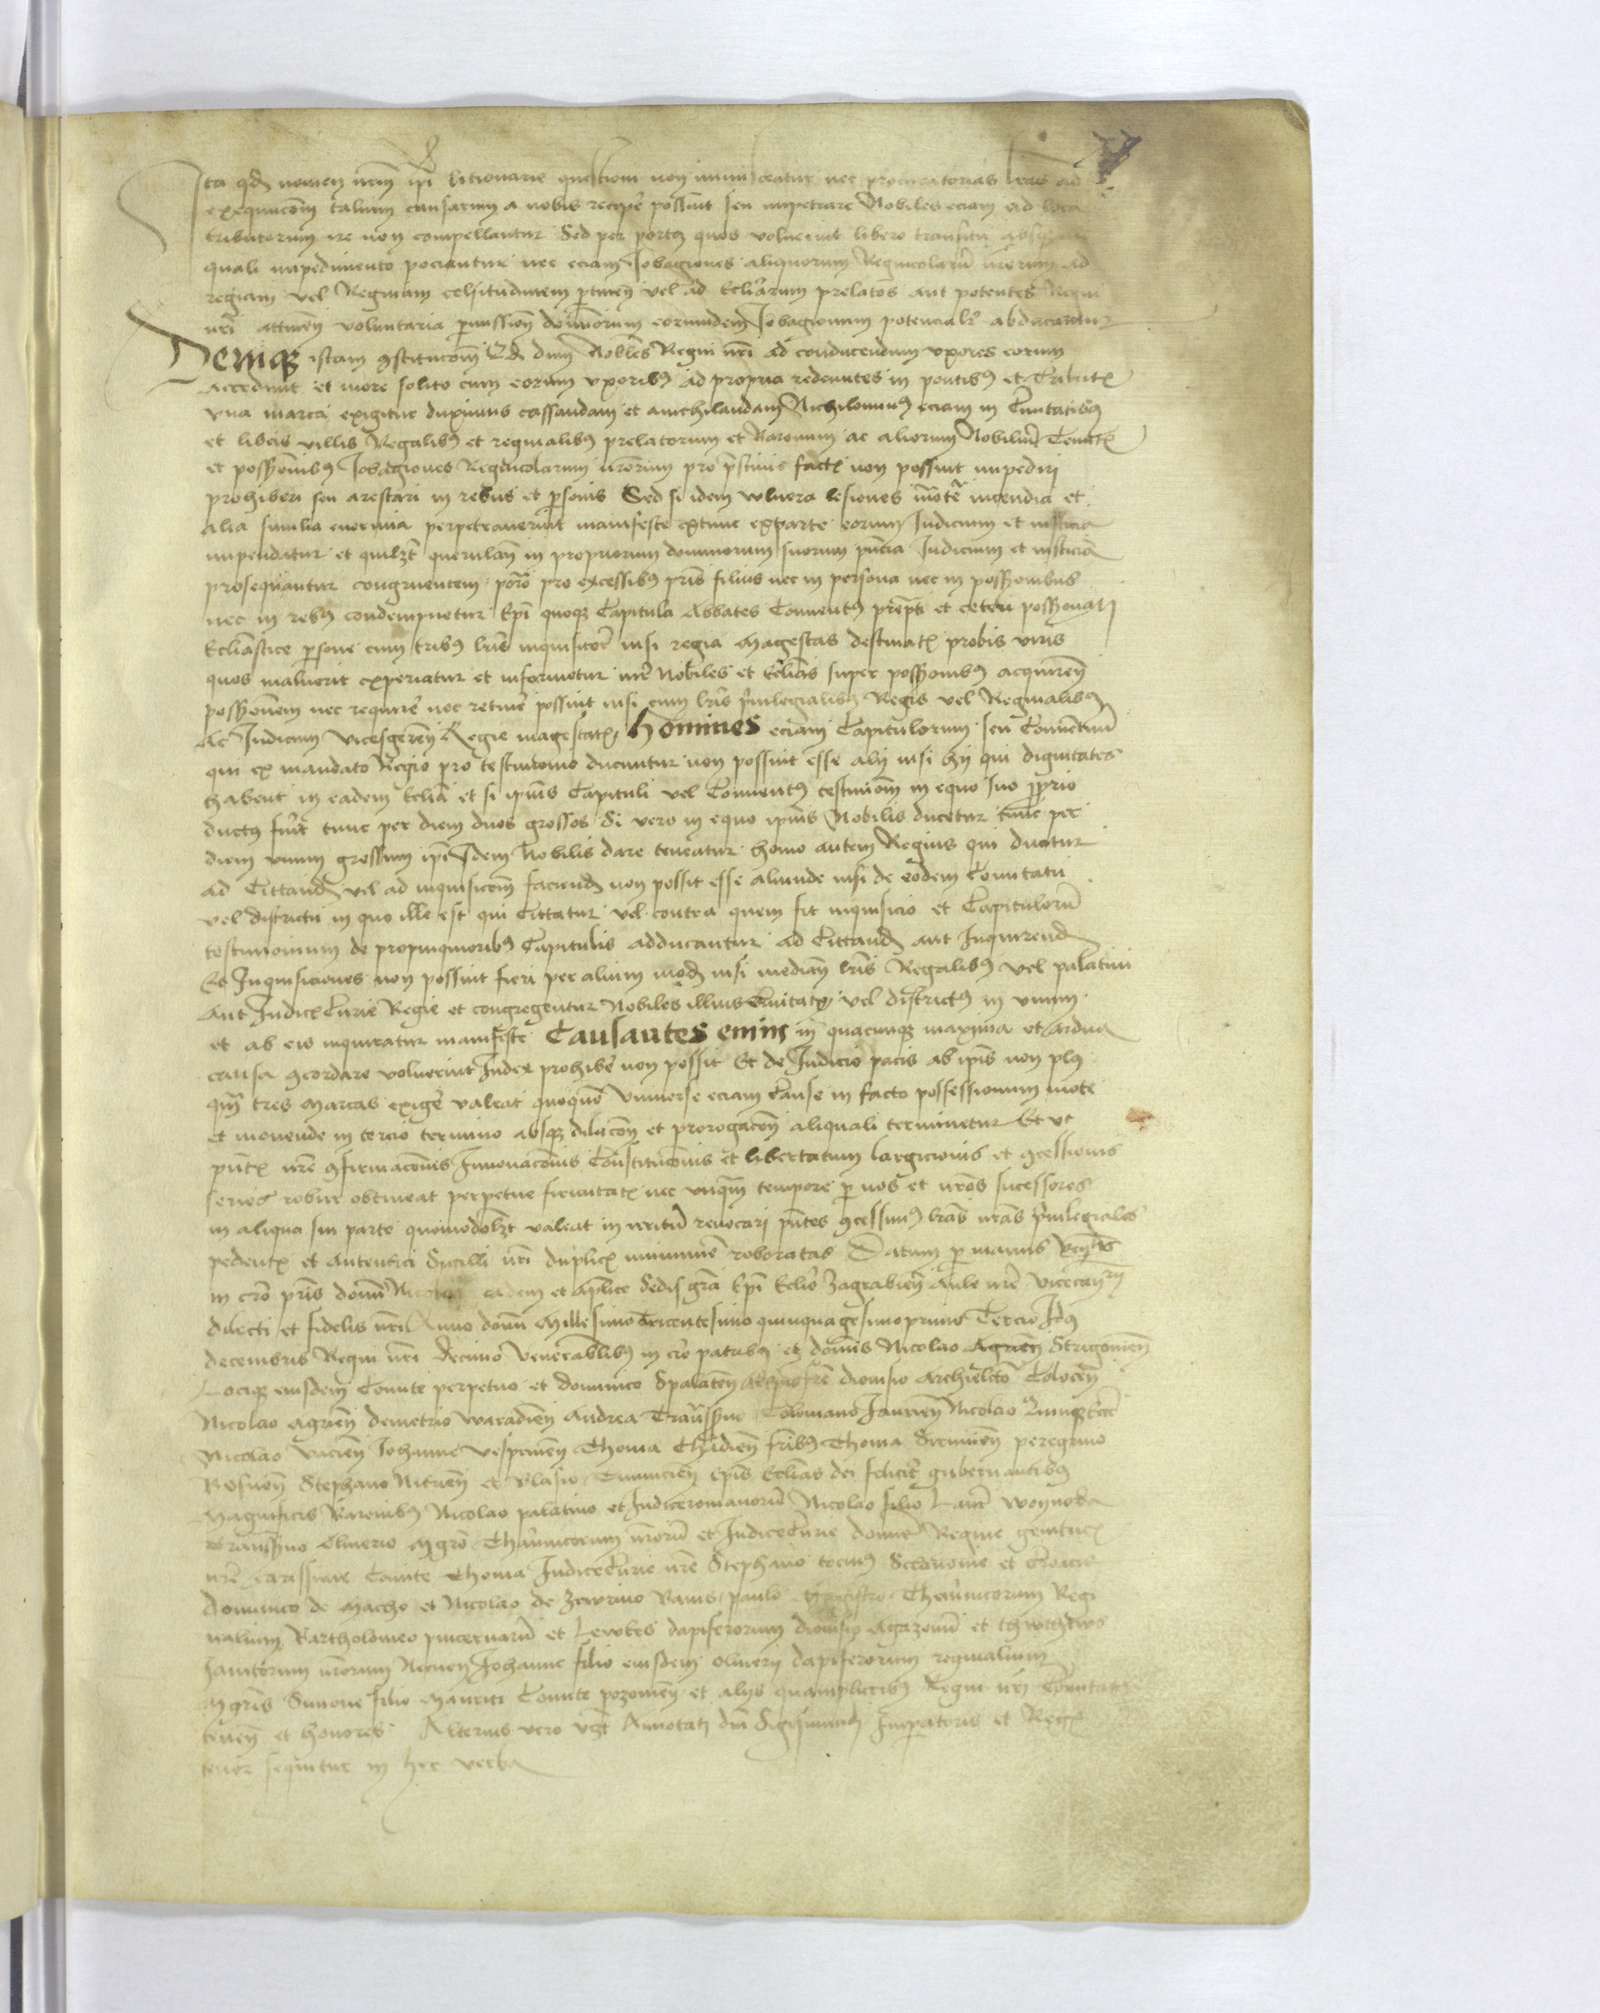 Ita qđ nomen nrm̃ ipĩ litionarie questioni non inmisceatur nec procuratorias lrãs ad
exequucõm talium causarum a nobis recipẽ possint seu impetrare Nobiles eciam ad loca
tributorum ire non compellantur Sed per portꝰ quos voluerint libero transitu absq̃
quali impedimento pociantur nec eciam Jobagiones aliquorum Regnicolarũ nrorum ad
regiam vel Reginam celsitudinem ꝑtineñ vel ad Ecliarum prelatos aut potentes Regni
nrĩ attineñ voluntaria ꝑmissioñ dominorum eorumdem Jobagionum potencialr̃ abducantur
Deniqꝫ istam ꝯstitucõm Qđ dum Nobiles Regni nrĩ ad conducendum vxores eorum
accedunt et more solito cum eorum vxoribꝰ ad propria redeuntes in pontibꝰ et Tributꝭ
vna marca exigitur duximus cassandam et annichilandam Nichilominꝰ eciam in Ciuitatibꝰ
et liberis villis Regalibꝰ et reginalibꝰ prelatorum et Baronum ac aliorum Nobiliũ Tenutꝭ
et possessionibꝰ Jobagiones Regnicolarum nrorum pro pristinis factꝭ non possint impediri
prohiberi seu arestari in rebus et ꝑsonis Sed si idem vlnera lesiones mortẽ incendia et
alia similia enormia perpetrauerint manifeste extunc exparte eorum Judicium et iusticia
impendatur et quilzt querulañ in propriorum dominorum suorum pñcia Judicium et iusticiã
prosequantur congruentem porõ pro excessibꝰ pris̃ filius nec in persona nec in possessionibus
nec in rebꝰ condempnetur Epĩ quoqꝫ Capitula Abbates Conuentꝰ prep̃ti et ceteri possessionati
Ecliastice ꝑsone cum tribꝰ lris̃ inquisitor̃ nisi regia Magestas destinatꝭ probis viris
quos maluerit experiatur et informetur int̃ Nobiles et Eclias̃ super possessionibꝰ acquireñ
possessionem nec requirẽ nec retinẽ possint nisi cum lris̃ priuilegialibꝰ Regis vel Reginalibꝰ
Ac Judicum vicesgereñ Regie magestatꝭ Homines eciam Capitulorum seu Conuentuũ
qui ex mandato Regio pro testimonio ducuntur non possint esse alij nisi hij qui dignitates
habent in eadem Eclia et si ipius̃ Capituli vel Conuentꝰ testimoñ in equo suo ꝓprio
ductꝰ fuit̃ tunc per diem duos grossos Si vero in equo ipius̃ Nobilis ducetur tunc per
diem vnum grossum ipẽ Idem Nobilis dare teneatur homo autem Regius qui ducitur
ad Cittand vel ad inquisicõm faciend non possit esse aliunde nisi de eodem Comitatu
vel districtu in quo ille est qui Cittatur vel contra quem fit inquisicio et Capitulorũ
testimonium de propinquioribꝰ Capitulis adducantur ad Cittand aut Inquirend
Et Inquisiciones non possint fieri per alium mod nisi mediañ lris̃ Regalibꝰ vel palatini
Aut Judicꝭ Curie Regie et congregentur Nobiles illius Ciuitatꝭ vel districtꝰ in vnum
et ab eis inquiratur manifeste Causantes enim in quacumqꝫ maxima et ardua
causa ꝯcordare voluerint Judex prohibẽ non possit Et de Judicio pacis ab ipis̃ non plꝰ
qm̃ tres Marcas exigẽ valeat quoquõ Vniuerse eciam Cause in facto possessionum mote
et mouende in tercio termino absqꝫ dilacõn et prorogacõn aliquali terminetur Et vt
pñtꝭ nrẽ ꝯfirmaconis̃ Innouaconis̃ Constituconis̃ et libertatum largicionis et ꝯcessionis
series robur obtineat perpetue firmitatꝭ nec vnqm̃ tempore ꝑ nos et nros̃ sucessores
in aliqua sui parte quomodolzt valeat in irritũ reuocari pñtes ꝯcessimꝰ lras̃ nras̃ priuilegiales
pedentꝭ et autentici Sigilli nrĩ duplicꝭ munimiñ roboratas Datum ꝑ manus
in cro̅ pris̃ dominĩ Nicolai eadem et aplice Sedis gra̅ Epĩ Eclie Zagrabieñ Aule nrẽ
dilecti et fidelis nrĩ Anno domini Millesimo Tricentesimo quinquagesimoprimo Tercio Idꝰ
decembris Regni nrĩ decimo Venerablibꝰ in cro̅ patribꝰ et dominis Nicolao Strigonieñ
Lociqꝫ eiusdem Comite perpetuo et dominico Spalateñ fre̅ dionisio Archielecto Coloceñ
Nicolao Agrieñ demetrio waradieñ Andrea Transsiluano Colomano Jaurieñ Nicolao
Nicolao vacieñ Johanne vesprimieñ Thoma Chanadieñ fribꝰ Thoma Sirmieñ peregrino
Bosneñ Stephano Nitrieñ et Blasio Tinnicieñ Epis̃ Eclias̃ dei felicit̃ gubernantibꝰ
Magnificis Baronibꝰ Nicolao palatino et Judicecomanorũ Nicolao filio Laur̃ woynoda
transsiluano Oliuerio Mgr̃o Thauernicorum nrorũ et Judicecurie domine Regine genitricꝭ
nrẽ carissime Comite Thoma Judicecurie nrẽ Stephano tocius Sclauonie et Croacie
dominico de Macho et Nicolao de Zewrino Banis paulo Magistro Thauernicorum Regi
nalium Bartholomeo pincernarũ et Lewkes dapiferorum dionisio Agazonũ et
Janitorum nrorum Necnon Johanne filio eiusdem oliuerij dapiferorum reginalium
Mgris̃ Simone filio Mauricii Comite posonieñ et alijs quampluribꝰ Regni nrĩ Comitatꝰ
teneñ et honores Alterius vero Annotati dñi Sigismundi Imperatoris et Regꝭ
tenor sequitur in hec verba